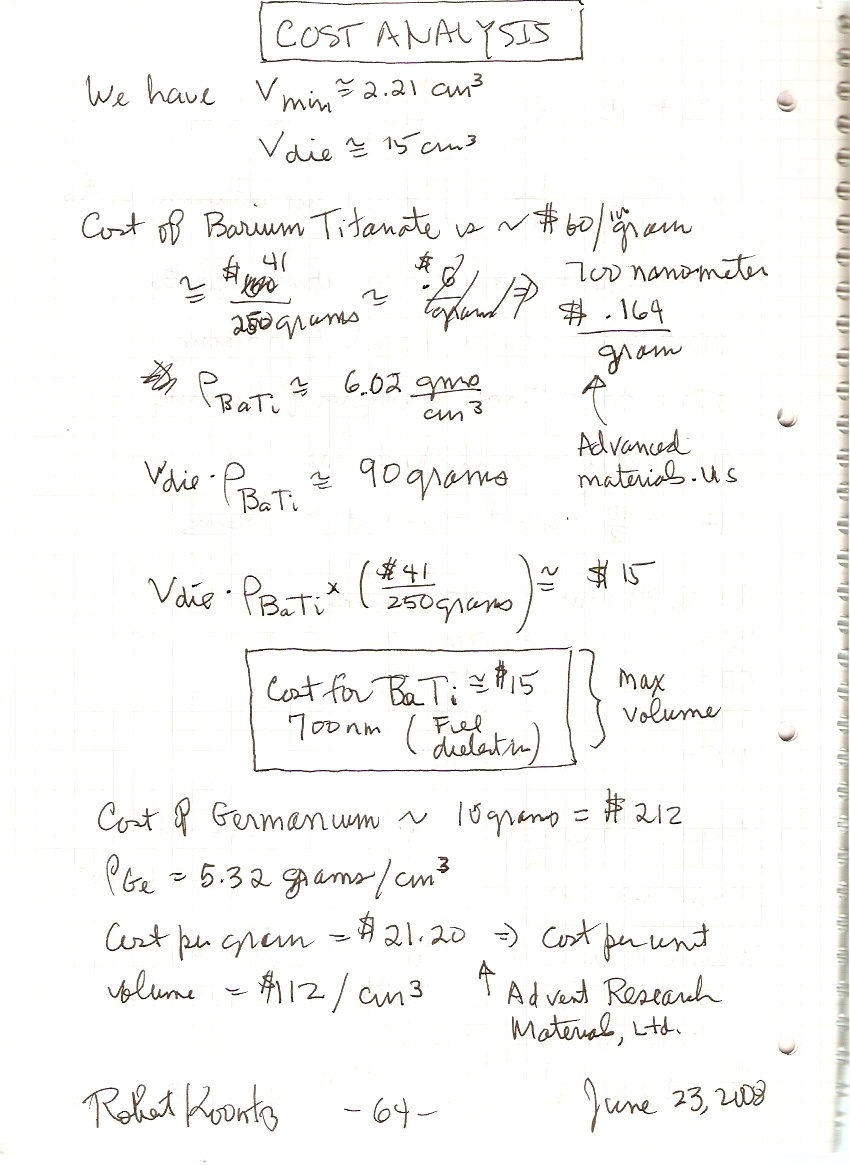 COST ANALYSIS
We have Vmin ≅ 2.21 cm³
Vdie ≅ 15 cm³
Cost of Barium Titanate is ~ $60/gram
≅ $41/250 grams ≅ $.6/gram ⇒ 700 nanometer
$ .164/gram
ρBaTi ≅ 6.02 gms/cm³
Advanced
materials.us
Vdie · ρBaTi ≅ 90 grams
Vdie · ρBaTi × ($41/250 grams) ≅ $15
Cost for BaTi ≅ $15
700 nm (Full
dielectric)
Max
Volume
Cost of Germanium ~ 10 grams = $212
ρGe = 5.32 grams/cm³
Cost per gram = $21.20 ⇒ Cost per unit
volume = $112/cm³
Advent Research
Materials, Ltd.
Robert Koontz - 64 - June 23, 2008